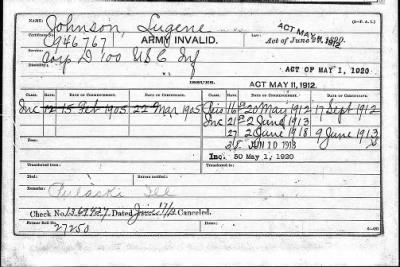 NAME: Johnson, Eugene (3-F. A. S.)
Certificate No. C946767 ARMY INVALID. ACT MAY 11, 1912.
Act of June 1920.
Service: Corp D 100 U S C Inf
Disability: ACT OF MAY 1, 1920
ISSUES.
ACT MAY 11, 1912.
CLASS. RATE. DATE OF COMMENCEMENT. DATE OF CERTIFICATE. CLASS. RATE. DATE OF COMMENCEMENT. DATE OF CERTIFICATE.
Inc 12 15 Feb 1905 22 Mar 1905 16 20 May 1912 17 Sept 1912
Inc 21 2 June 1913
27 2 June 1918 9 June 1913
JUN 10 1918
Inc. 50 May 1, 1920
Transferred from:
Transferred to:
Died:
Remarks: Pulaski
Check No. Dated Canceled.
Former Roll No. 27250